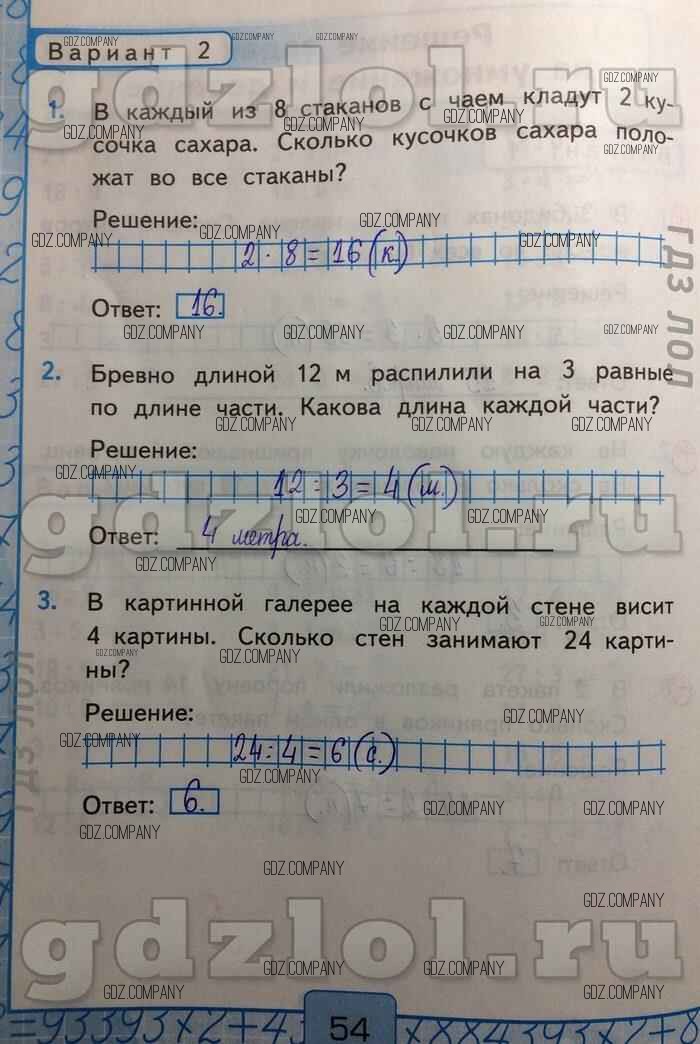 Вариант 2
1. В каждый из 8 стаканов с чаем кладут 2 ку-
сочка сахара. Сколько кусочков сахара поло-
жат во все стаканы?
Решение:
2 · 8 = 16 (к.)
Ответ: 16.
2. Бревно длиной 12 м распилили на 3 равные
по длине части. Какова длина каждой части?
Решение:
12 : 3 = 4 (м.)
Ответ: 4 метра.
3. В картинной галерее на каждой стене висит
4 картины. Сколько стен занимают 24 карти-
ны?
Решение:
24 : 4 = 6 (с.)
Ответ: 6.
54
gdzlol.ru
GDZ.COMPANY
ГДЗ ЛОЛ